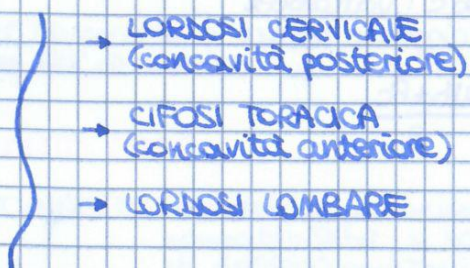 → LORDOSI CERVICALE
(concavità posteriore)
→ CIFOSI TORACICA
(concavità anteriore)
→ LORDOSI LOMBARE